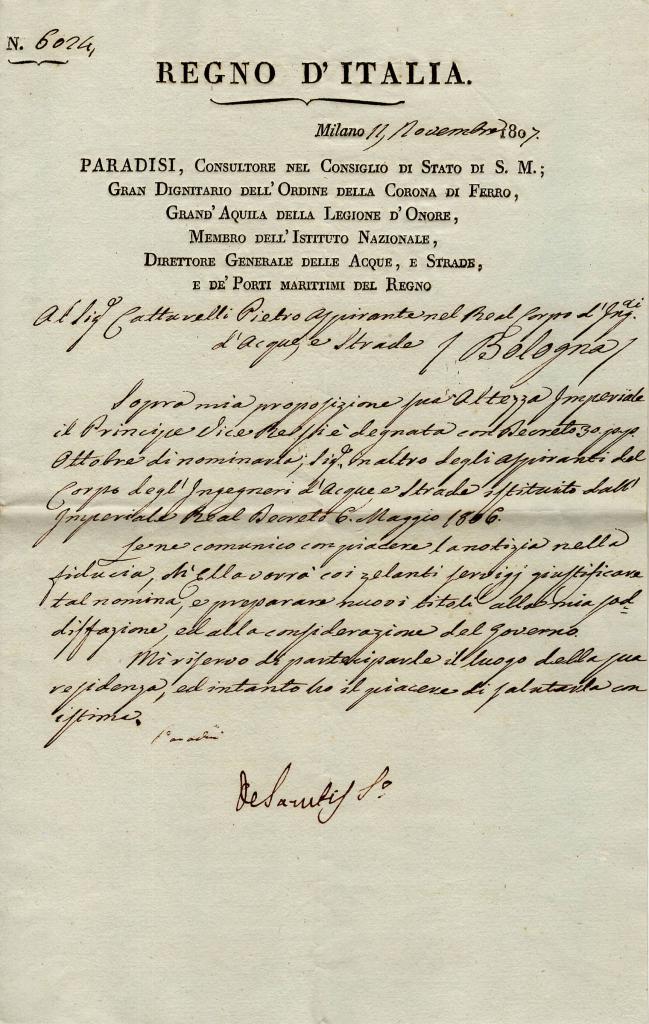 N. 6024,
REGNO D'ITALIA.
Milano 11, Novembre 1807.
PARADISI, Consultore nel Consiglio di Stato di S. M.;
Gran Dignitario dell'Ordine della Corona di Ferro,
Grand'Aquila della Legione d'Onore,
Membro dell'Istituto Nazionale,
Direttore Generale delle Acque, e Strade,
e de' Porti marittimi del Regno
Al Sigr. Pietro Aspirante nel Real Corpo d'Ing.ri
d'Acque, e Strade / Bologna /
Sopra mia proposizione sua Altezza Imperiale
il Principe Vice Re si è degnata con Decreto 30 p.p.
Ottobre di nominarla, Sigr. altro degli Aspiranti del
Corpo degl'Ingegneri d'Acque, e Strade istituito dall'
Imperiale Real Decreto 6. Maggio 1806.
Je ne comunico con piacere la notizia nella
fiducia, ch'Ella vorrà coi zelanti servigj giustificare
tal nomina, e preparare nuovi titoli alla mia sod-
disfazione, ed alla considerazione del Governo.
Mi riservo di parteciparle il luogo della sua
residenza, ed intanto ho il piacere di salutarla con
istima.
Paradisi